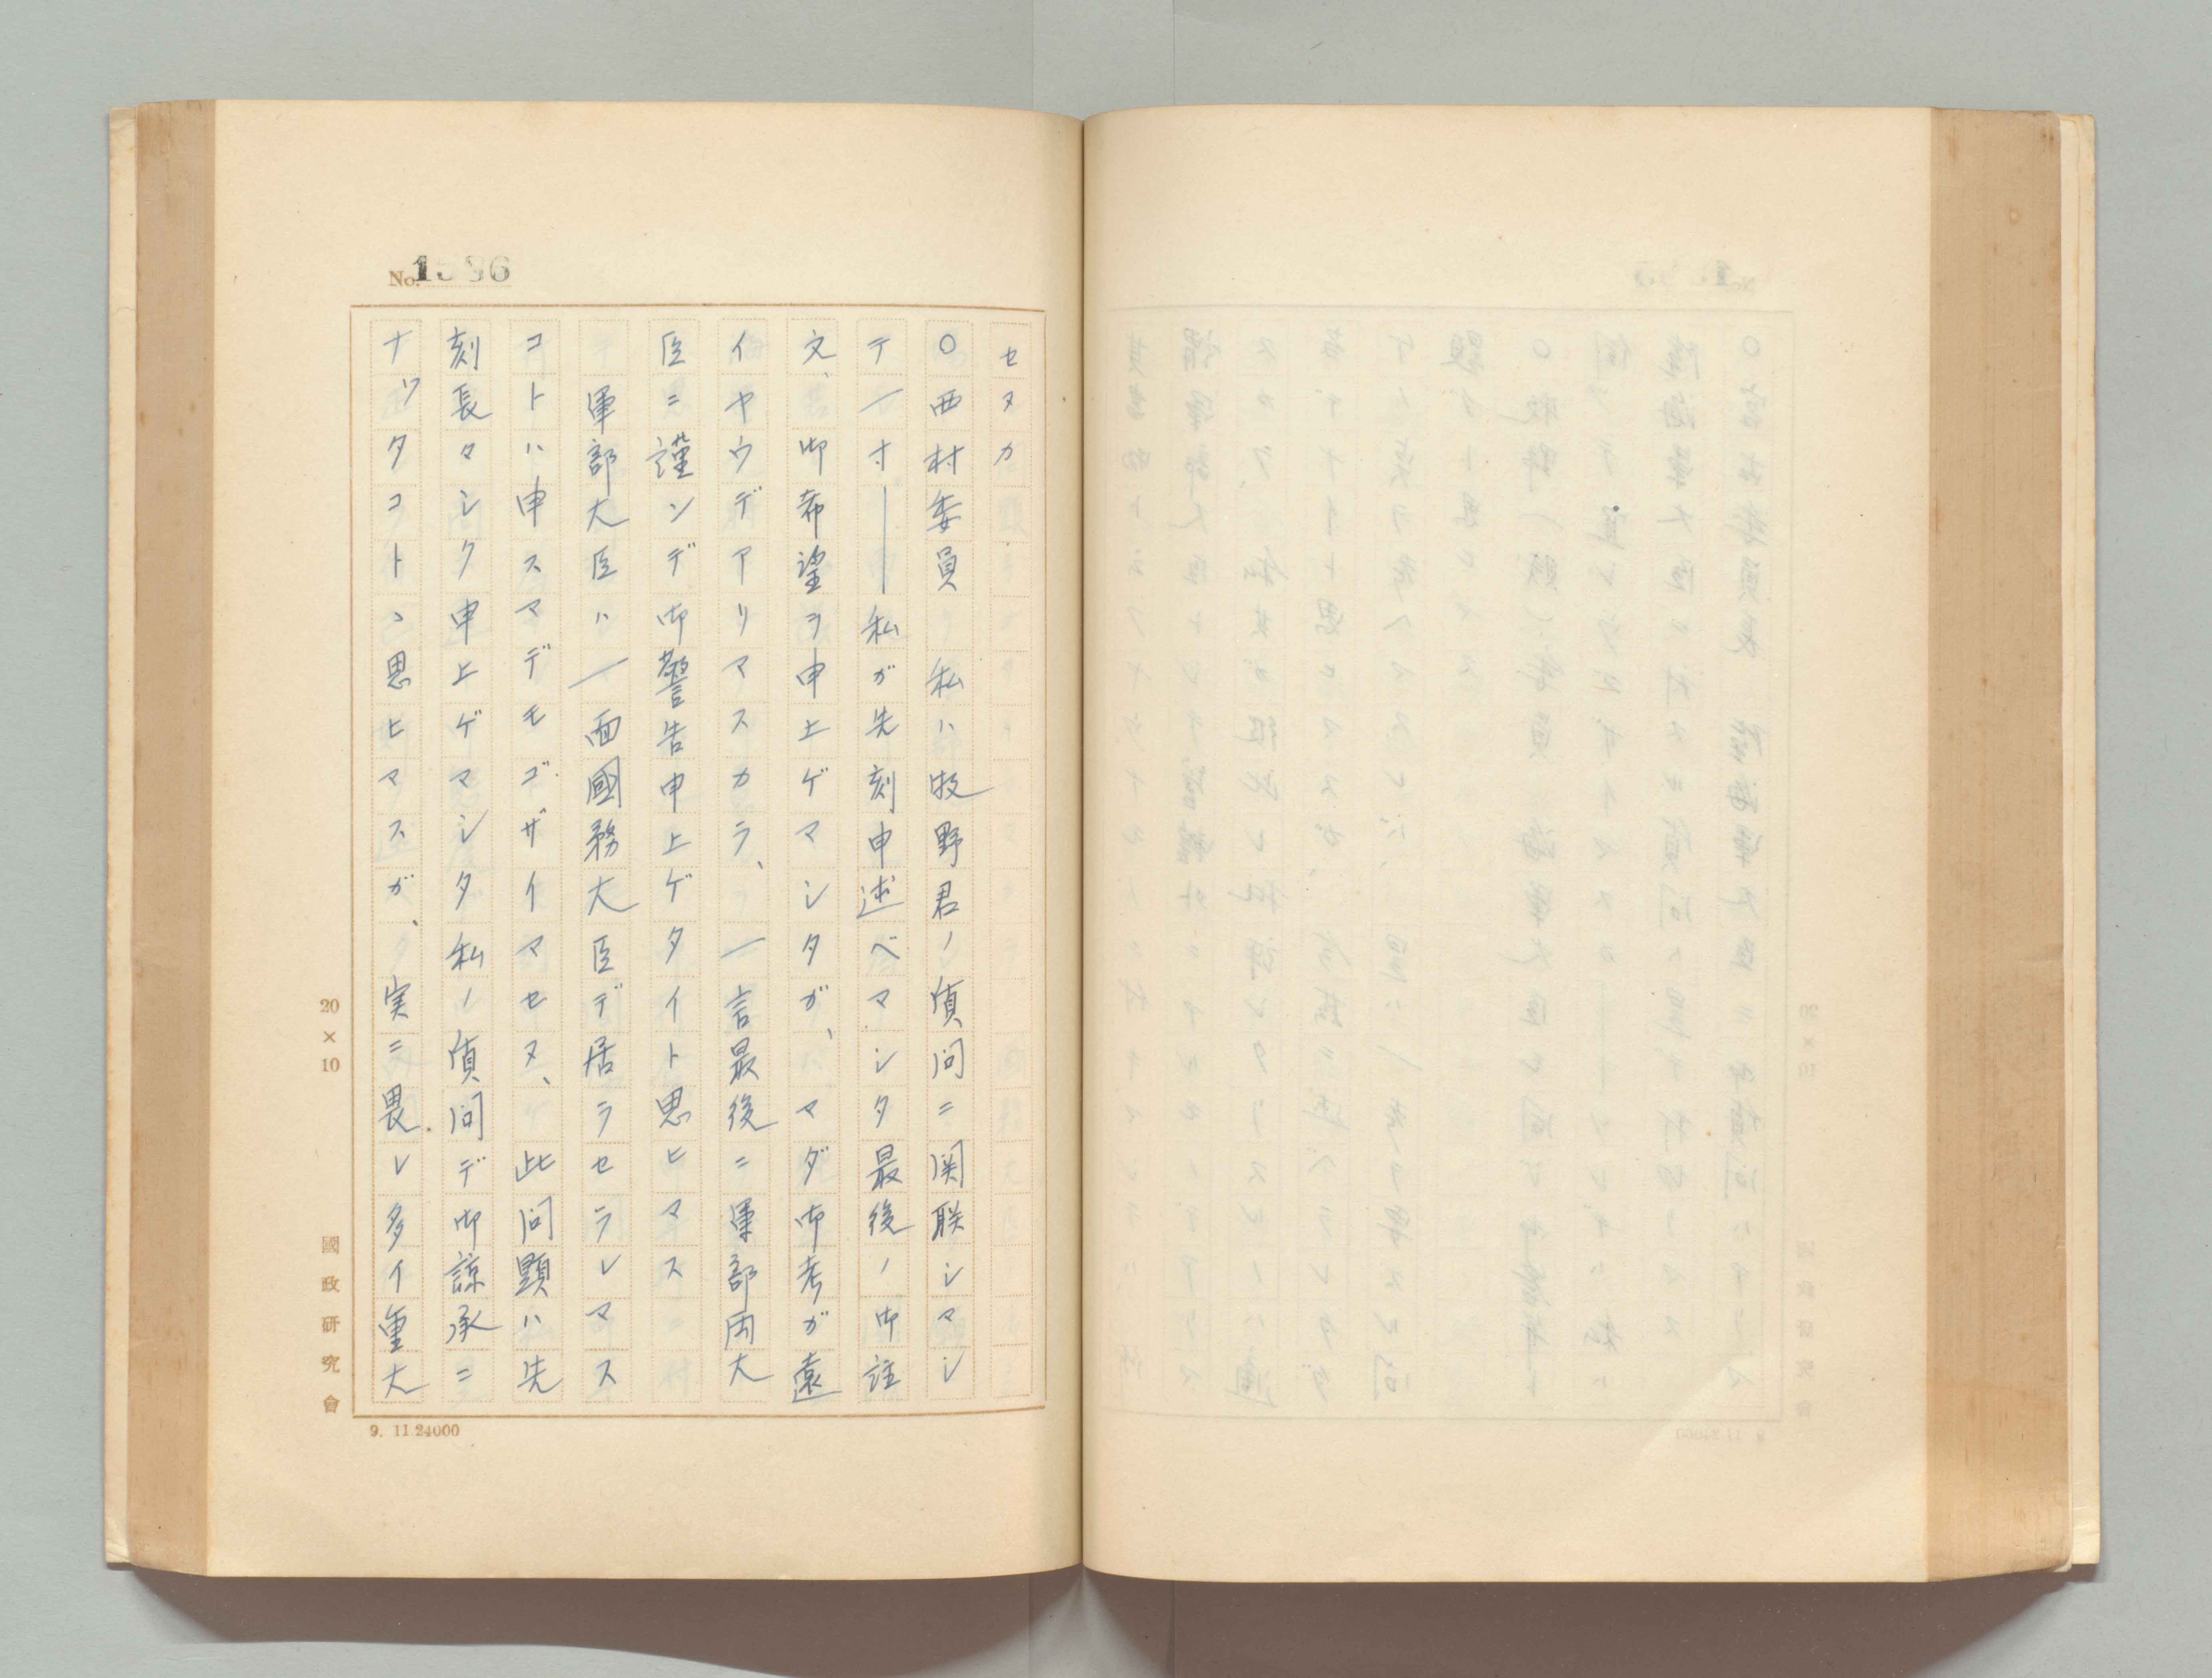 No. 1586
セヌカ
〇西村委員　私ハ牧野君ノ質問ニ関聯シマシ
テ一寸――私ガ先刻申述ベマシタ最後ノ御註
文、御希望ヲ申上ゲマシタガ、マダ御考ガ遠
イヤウデアリマスカラ、一言最後ニ軍部両大
臣ニ謹ンデ御警告申上ゲタイト思ヒマス
軍部大臣ハ一面國務大臣デ居ラセラレマス
コトハ申スマデモゴザイマセヌ、此問題ハ先
刻長々シク申上ゲマシタ私ノ質問デ御諒承ニ
ナツタコトヽ思ヒマスガ、実ニ畏レ多イ重大
20×10
國政研究會
9. 11.24000